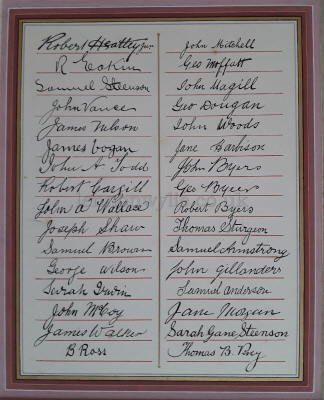 Robert Heatley junr
R Eakin
Samuel Steenson
John Vance
James Nelson
James Logan
John A Todd
Robert Cargill
John A Wallace
Joseph Shaw
Samuel Brown
George Wilson
Sarah Irwin
John McCoy
James Walker
B Ross
John Mitchell
Geo Moffatt
John Magill
Geo Dougan
John Woods
Jane Harbison
John Byers
Geo Byers
Robert Byers
Thomas Sturgeon
Samuel Armstrong
John Gillanders
Samuel Anderson
Jane
Sarah Jane Steenson
Thomas B.